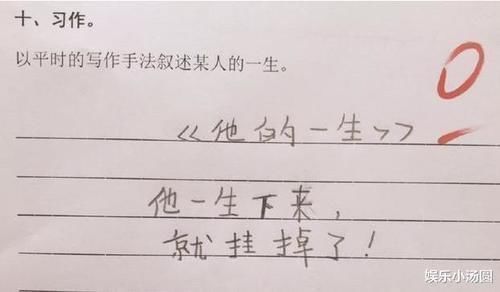 十、习作。
以平时的写作手法叙述某人的一生。
0
《他的一生》
他一生下来，
就挂掉了！
娱乐小汤圆